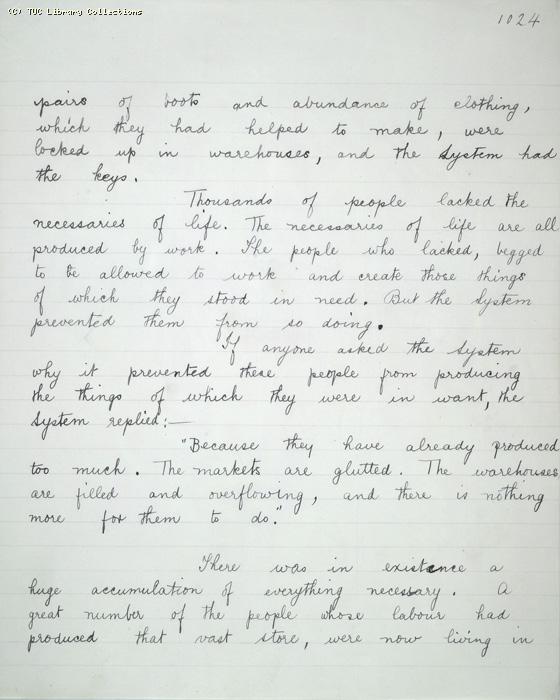 (C) TUC Library Collections
1024
pairs of boots and abundance of clothing,
which they had helped to make, were
locked up in warehouses, and the System had
the keys.
Thousands of people lacked the
necessaries of life. The necessaries of life are all
produced by work. The people who lacked, begged
to be allowed to work and create those things
of which they stood in need. But the System
prevented them from so doing.
If anyone asked the System
why it prevented these people from producing
the things of which they were in want, the
System replied:—
"Because they have already produced
too much. The markets are glutted. The warehouses
are filled and overflowing, and there is nothing
more for them to do."
There was in existence a
huge accumulation of everything necessary. A
great number of the people whose labour had
produced that vast store, were now living in